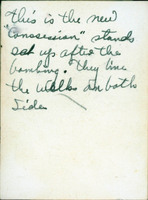 this is the new
"Conssesian" stands
set up after the
bombing. They line
the walks on both
sides